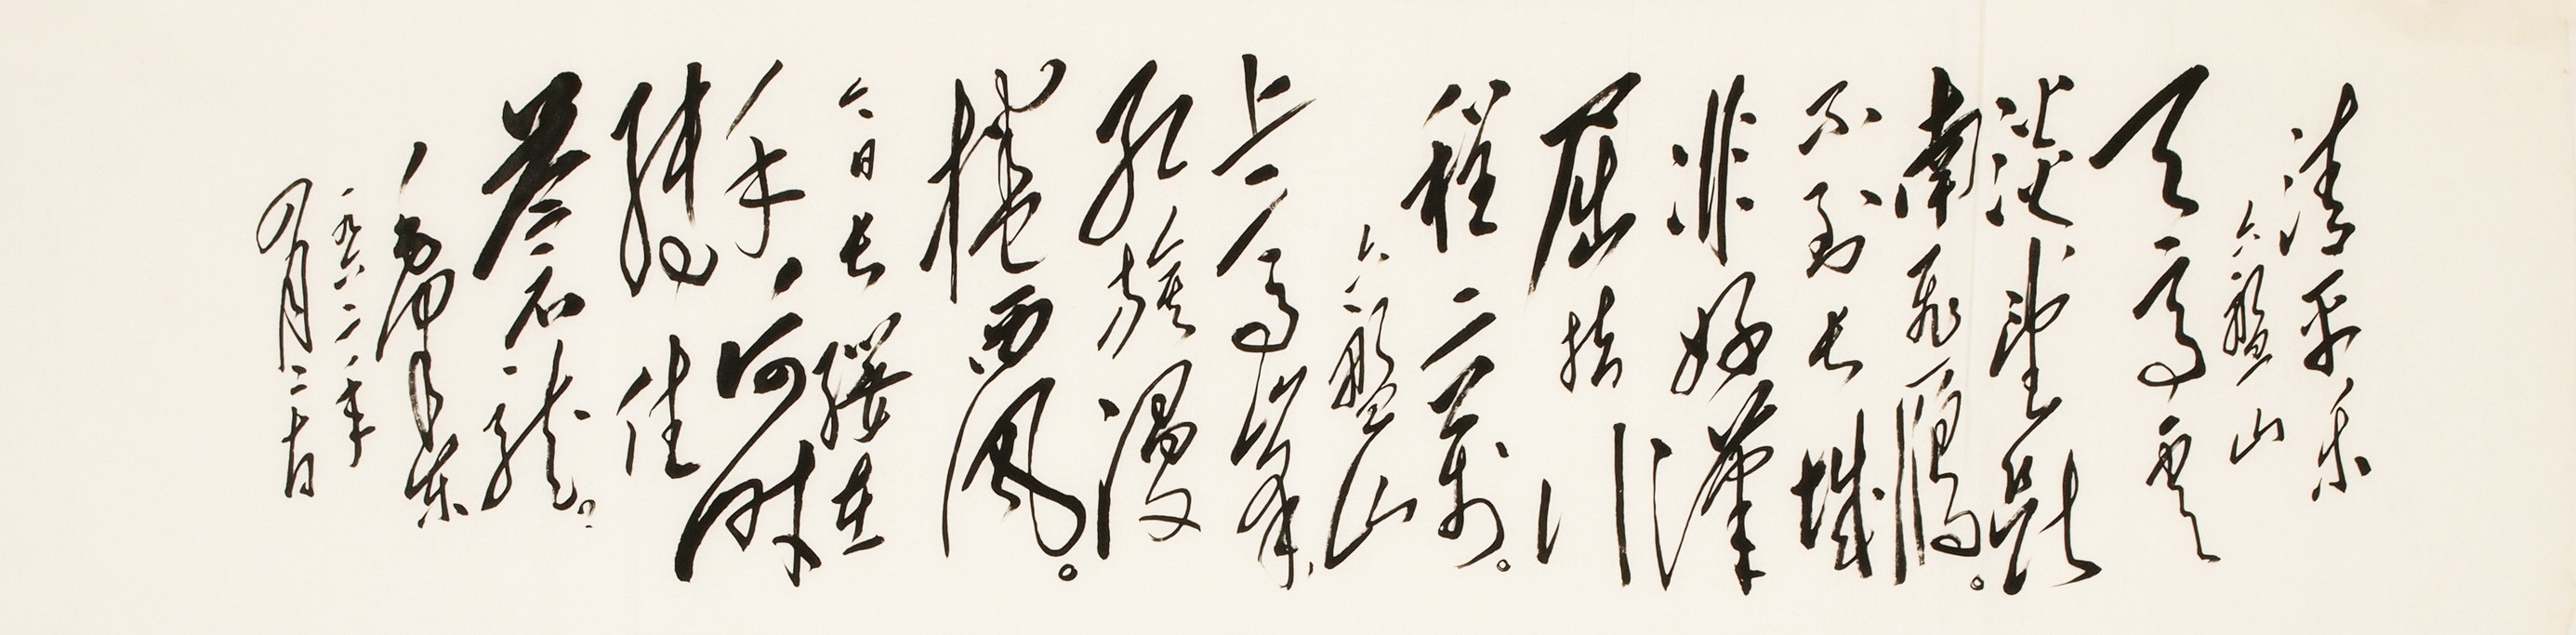 清平乐
六盤山
天高雲
淡望断
南飛雁。
不到长城
非好漢
屈指行
程二萬。
六盤山
上高峰
红旗漫
捲西风。
今日长缨在
手，何时
缚住
苍龙。
毛泽东
一九六二年
四月二十日